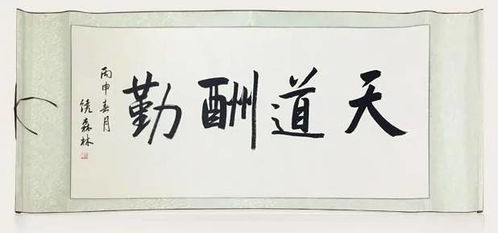 天道酬勤
丙申春月
饶森林